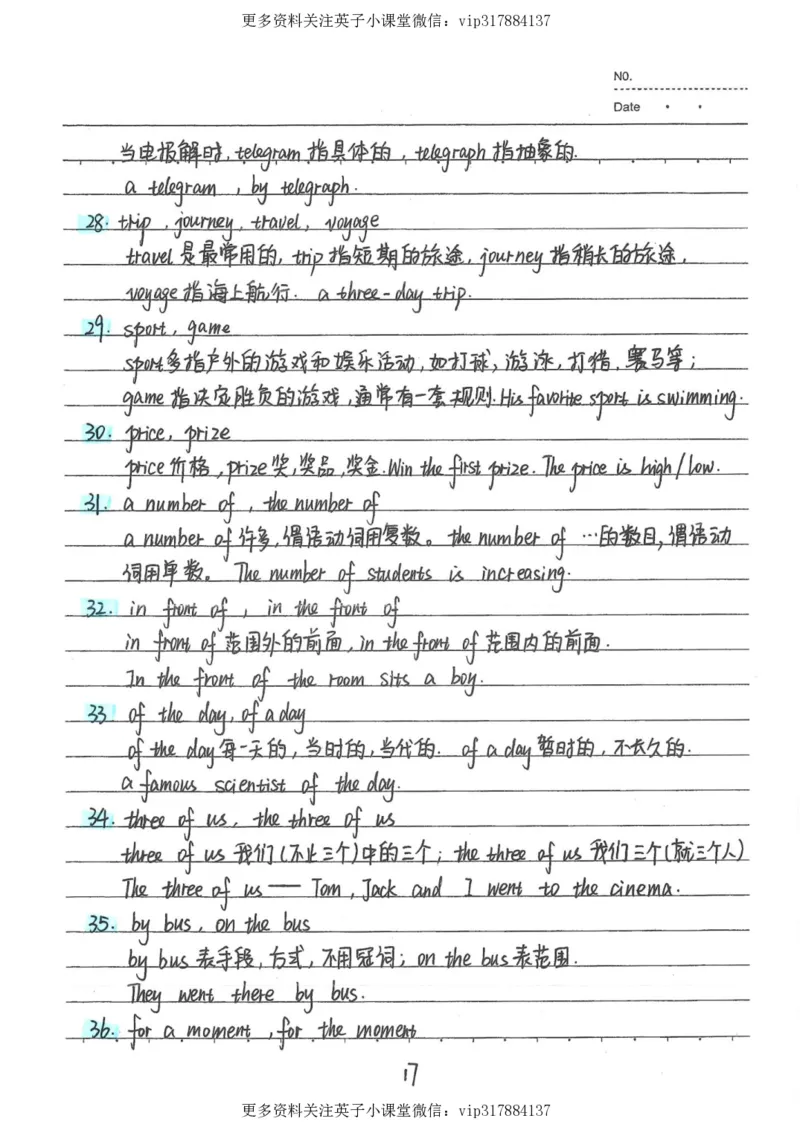 更多资料关注英子小课堂微信：vip317884137
NO.
Date · ·
当电报解时, telegram 指具体的, telegraph 指抽象的.
a telegram , by telegraph.
28. trip , journey, travel, voyage
travel 是最常用的, trip 指短期的旅途, journey 指稍长的旅途,
voyage 指海上航行. a three-day trip.
29. sport, game
sport多指户外的游戏和娱乐活动, 如打球, 游泳, 打猎, 赛马等;
game 指决定胜负的游戏, 通常有一套规则. His favorite sport is swimming.
30. price, prize
price 价格, prize 奖, 奖品, 奖金. Win the first prize. The price is high/low.
31. a number of , the number of
a number of 许多, 谓语动词用复数。 the number of …的数目, 谓语动
词用单数。 The number of students is increasing.
32. in front of , in the front of
in front of 范围外的前面, in the front of 范围内的前面.
In the front of the room sits a boy.
33 of the day, of a day
of the day 每一天的, 当时的, 当代的. of a day 暂时的, 不长久的.
a famous scientist of the day.
34. three of us, the three of us
three of us 我们(不止三个)中的三个; the three of us 我们三个(就三个人)
The three of us — Tom, Jack and I went to the cinema.
35. by bus, on the bus
by bus 表手段, 方式, 不用冠词; on the bus 表范围.
They went there by bus.
36. for a moment , for the moment
17
更多资料关注英子小课堂微信：vip317884137